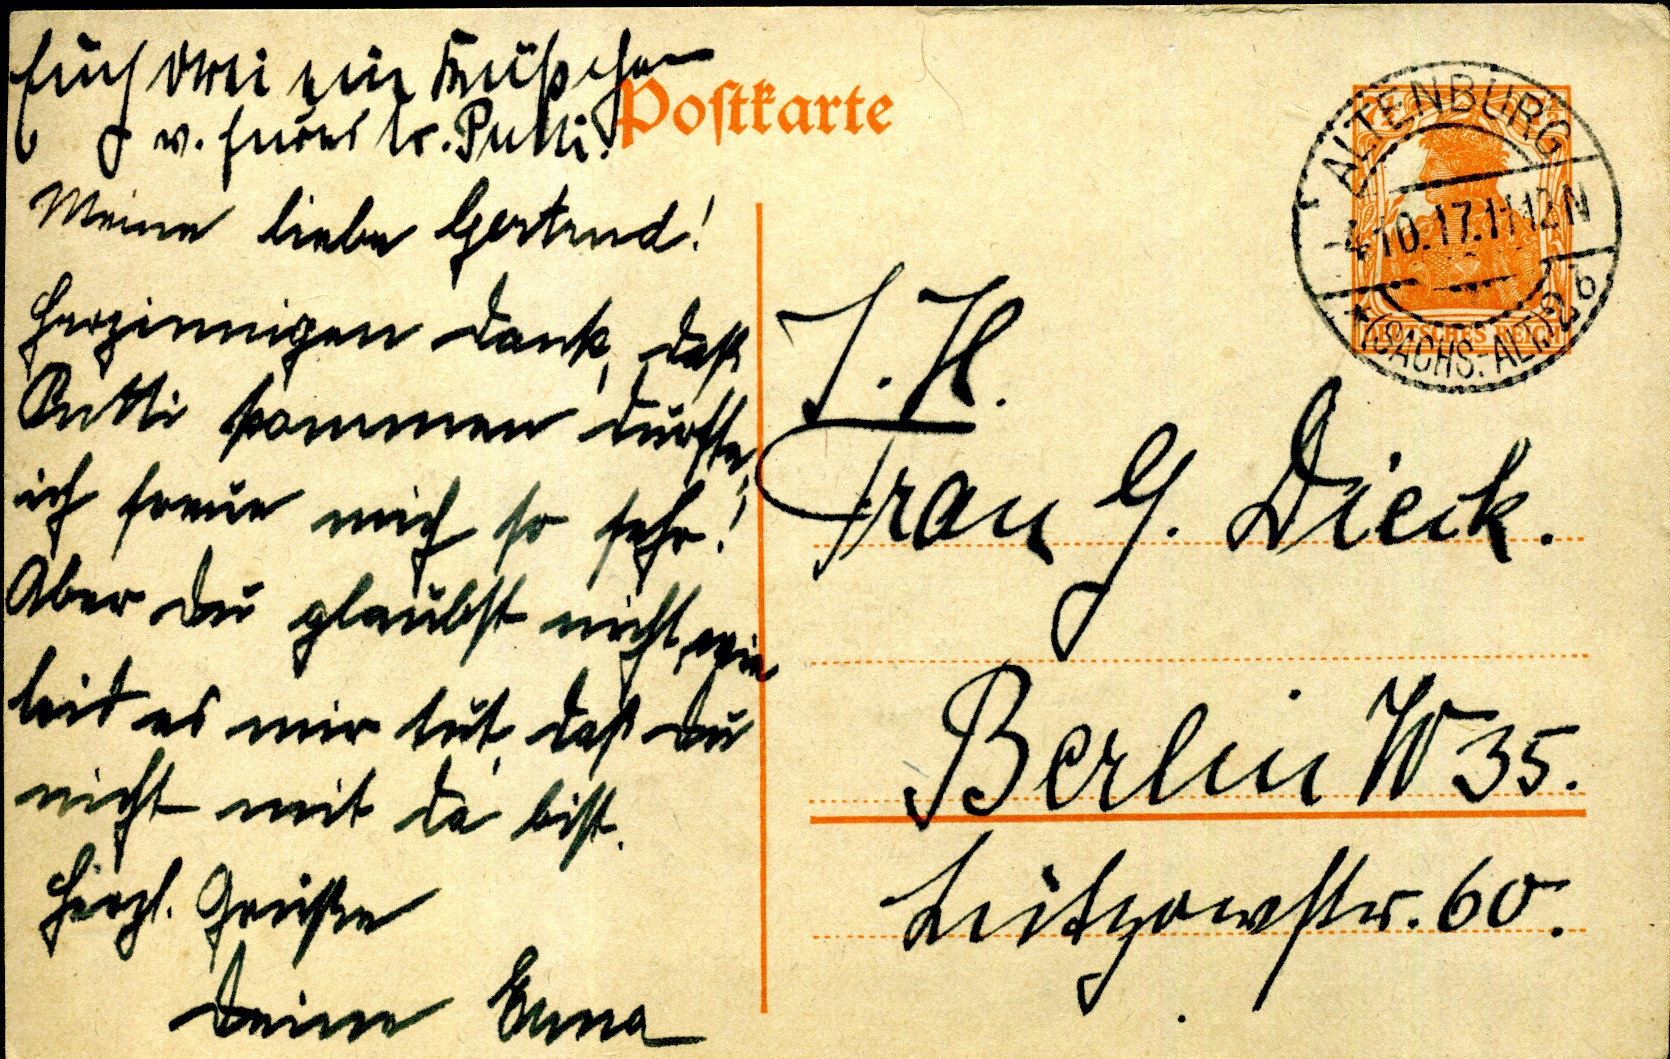 Euch drei ein Küßchen
v. Eurer lb. Putti.
Postkarte
Meine liebe Gertrud!
Herzinnigen Dank, daß
Putti kommen durfte,
ich freue mich so sehr!
Aber Du glaubst nicht, wie
leid es mir tut, daß Du
nicht mit da bist.
Herzl. Grüße
Deine Erna
ALTENBURG
4.10.17.11-12N
(SACHS.-ALT.) 2 b
7½
DEUTSCHES REICH
I. H.
Frau G. Dieck.
Berlin W 35.
Lützowstr. 60.